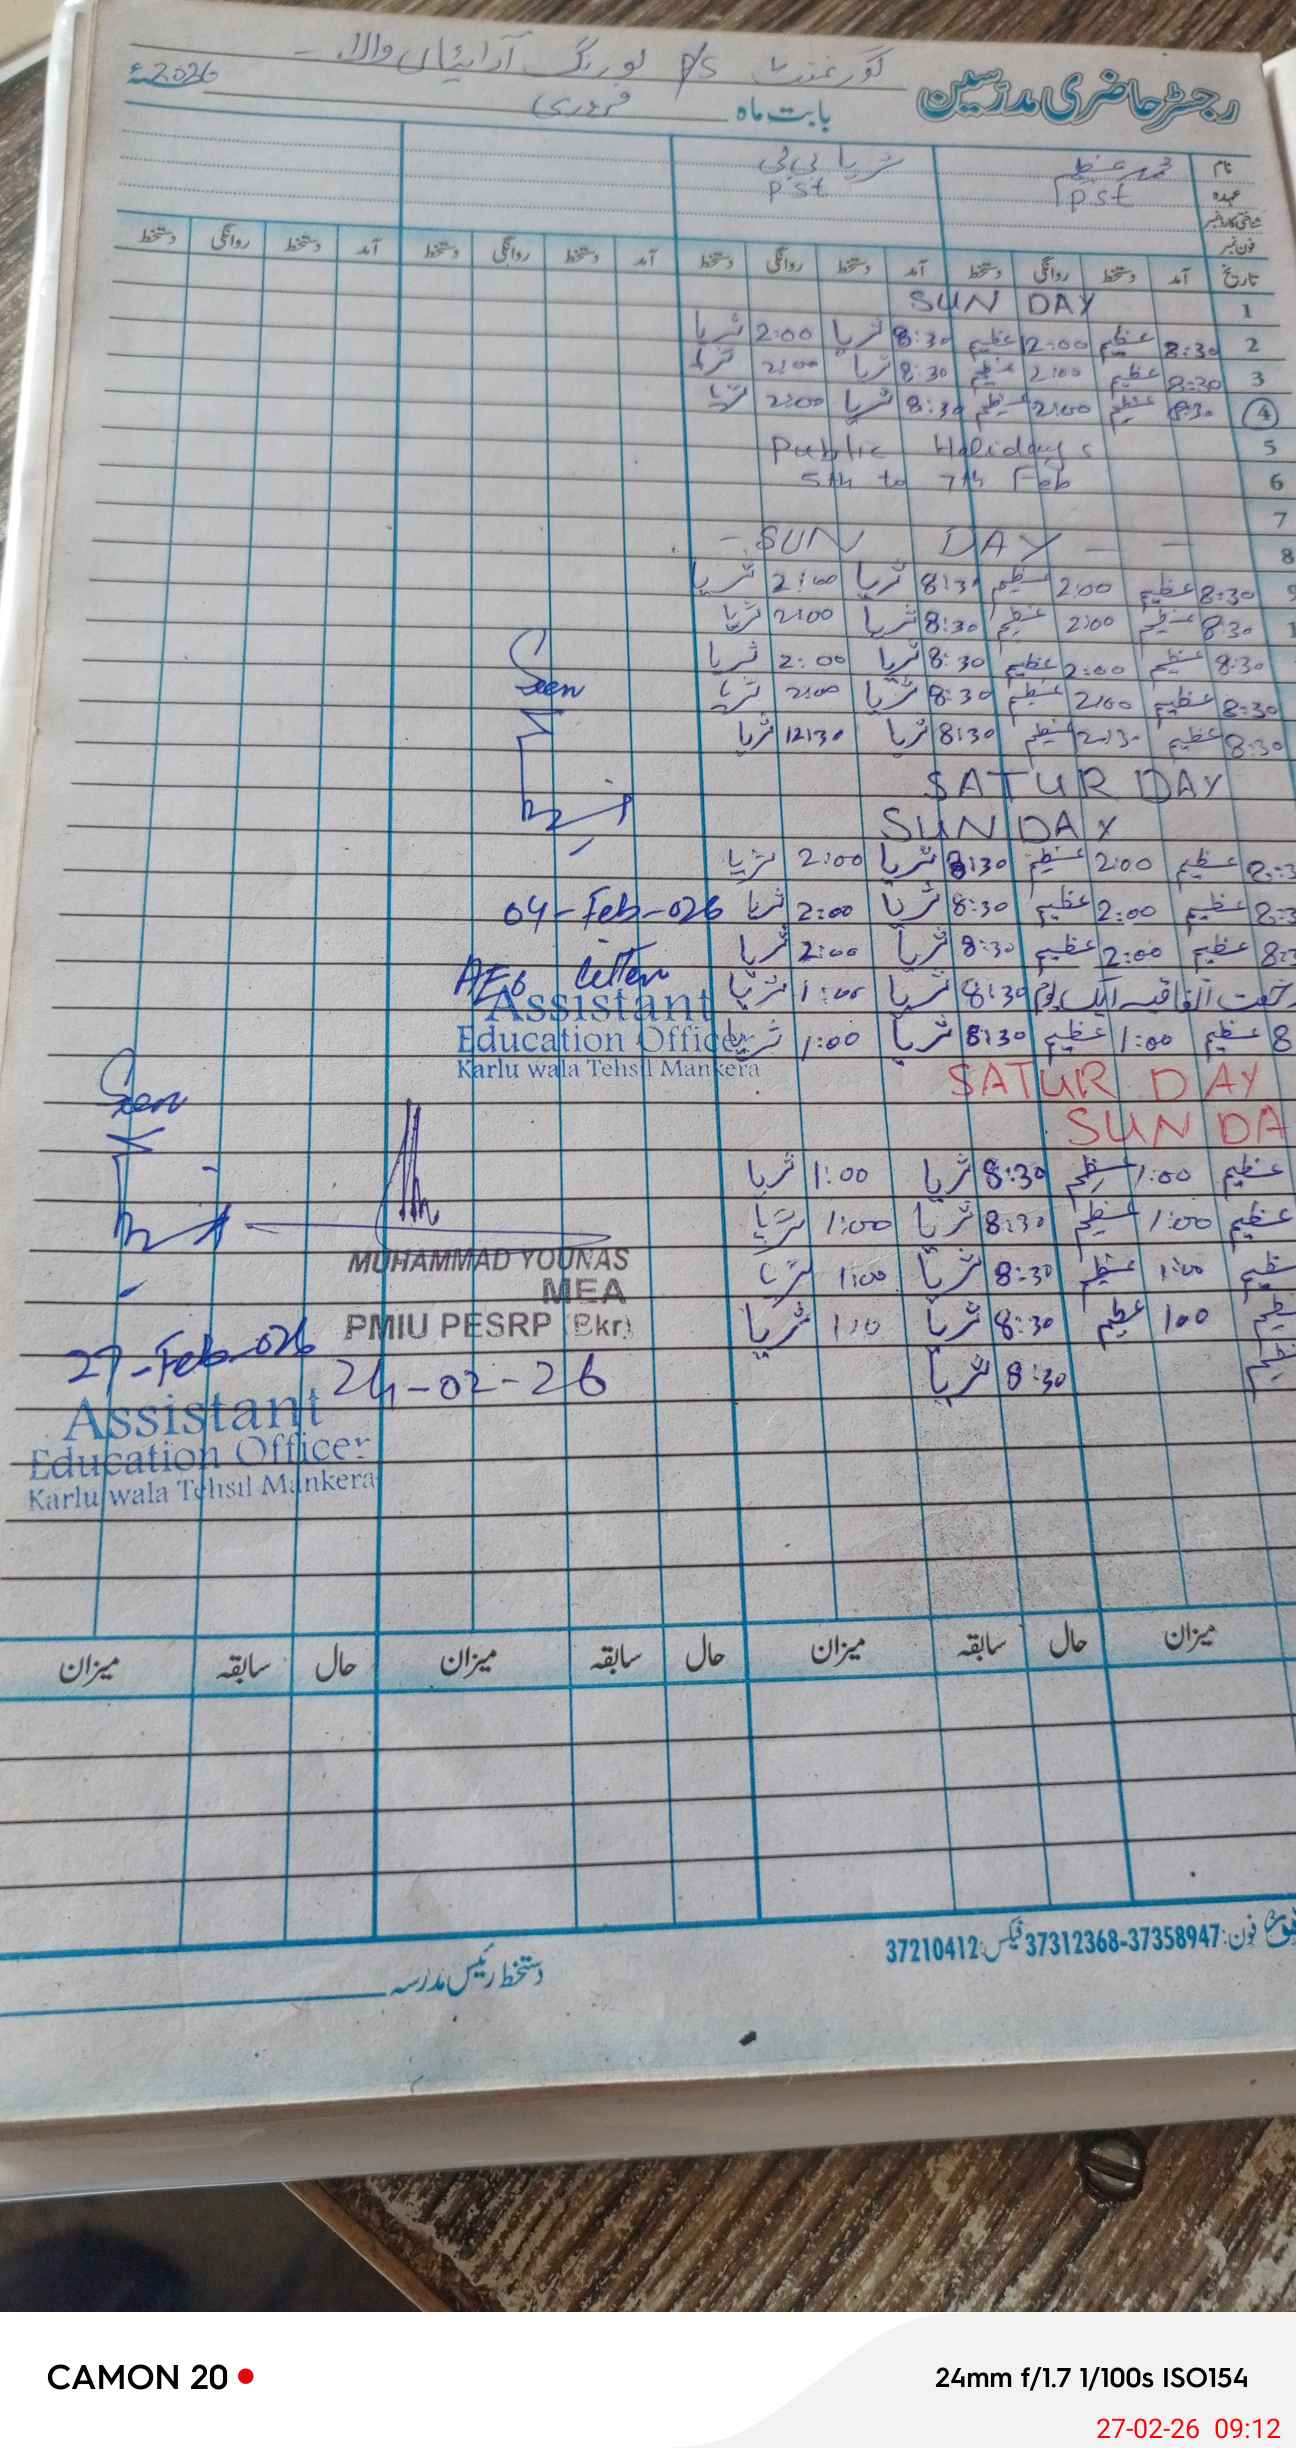 گورنمنٹ P/S نورنگ آرائیاں والا
رجسٹر حاضری مدرسین بابت ماہ فروری 2026ء
نام محمد عظیم ثریا بی بی
عہدہ Pst P.st
شناختی کارڈ نمبر
فون نمبر
تاریخ آمد دستخط روانگی دستخط آمد دستخط روانگی دستخط آمد دستخط روانگی دستخط آمد دستخط روانگی دستخط
1 SUNDAY
2 8:30 عظیم 2:00 عظیم 8:30 ثریا 2:00 ثریا
3 8:30 عظیم 2:00 عظیم 8:30 ثریا 2:00 ثریا
4 8:30 عظیم 2:00 عظیم 8:30 ثریا 2:00 ثریا
5 Public Holidays
6 5th to 7th Feb
7
8 - SUN DAY - -
9 8:30 عظیم 2:00 عظیم 8:30 ثریا 2:00 ثریا
8:30 عظیم 2:00 عظیم 8:30 ثریا 2:00 ثریا
8:30 عظیم 2:00 عظیم 8:30 ثریا 2:00 ثریا
8:30 عظیم 2:00 عظیم 8:30 ثریا 2:00 ثریا
8:30 عظیم 12:30 عظیم 8:30 ثریا 12:30 ثریا
SATURDAY
SUNDAY
عظیم 2:00 عظیم 8:30 ثریا 2:00 ثریا
عظیم 2:00 عظیم 8:30 ثریا 2:00 ثریا
عظیم 2:00 عظیم 8:30 ثریا 2:00 ثریا
رخصت اتفاقیہ ایک یوم 8:30 ثریا 1:00 ثریا
8 عظیم 1:00 عظیم 8:30 ثریا 1:00 ثریا
SATUR DAY
SUN DA
عظیم 1:00 عظیم 8:30 ثریا 1:00 ثریا
عظیم 1:00 عظیم 8:30 ثریا 1:00 ثریا
عظیم 1:00 عظیم 8:30 ثریا 1:00 ثریا
عظیم 1:00 عظیم 8:30 ثریا 1:00 ثریا
عظیم 8:30 ثریا
Seen
04-Feb-026
AEO
Assistant
Education Officer
Karlu wala Tehsil Mankera
Seen
27-Feb-026
Assistant
Education Officer
Karlu wala Tehsil Mankera
MUHAMMAD YOUNAS
MEA
PMIU PESRP (Bkr)
24-02-26
میزان حال سابقہ میزان حال سابقہ میزان حال سابقہ میزان
فون: 37358947-37312368 فیکس: 37210412
دستخط رئیس مدرسہ
CAMON 20
24mm f/1.7 1/100s ISO154
27-02-26 09:12